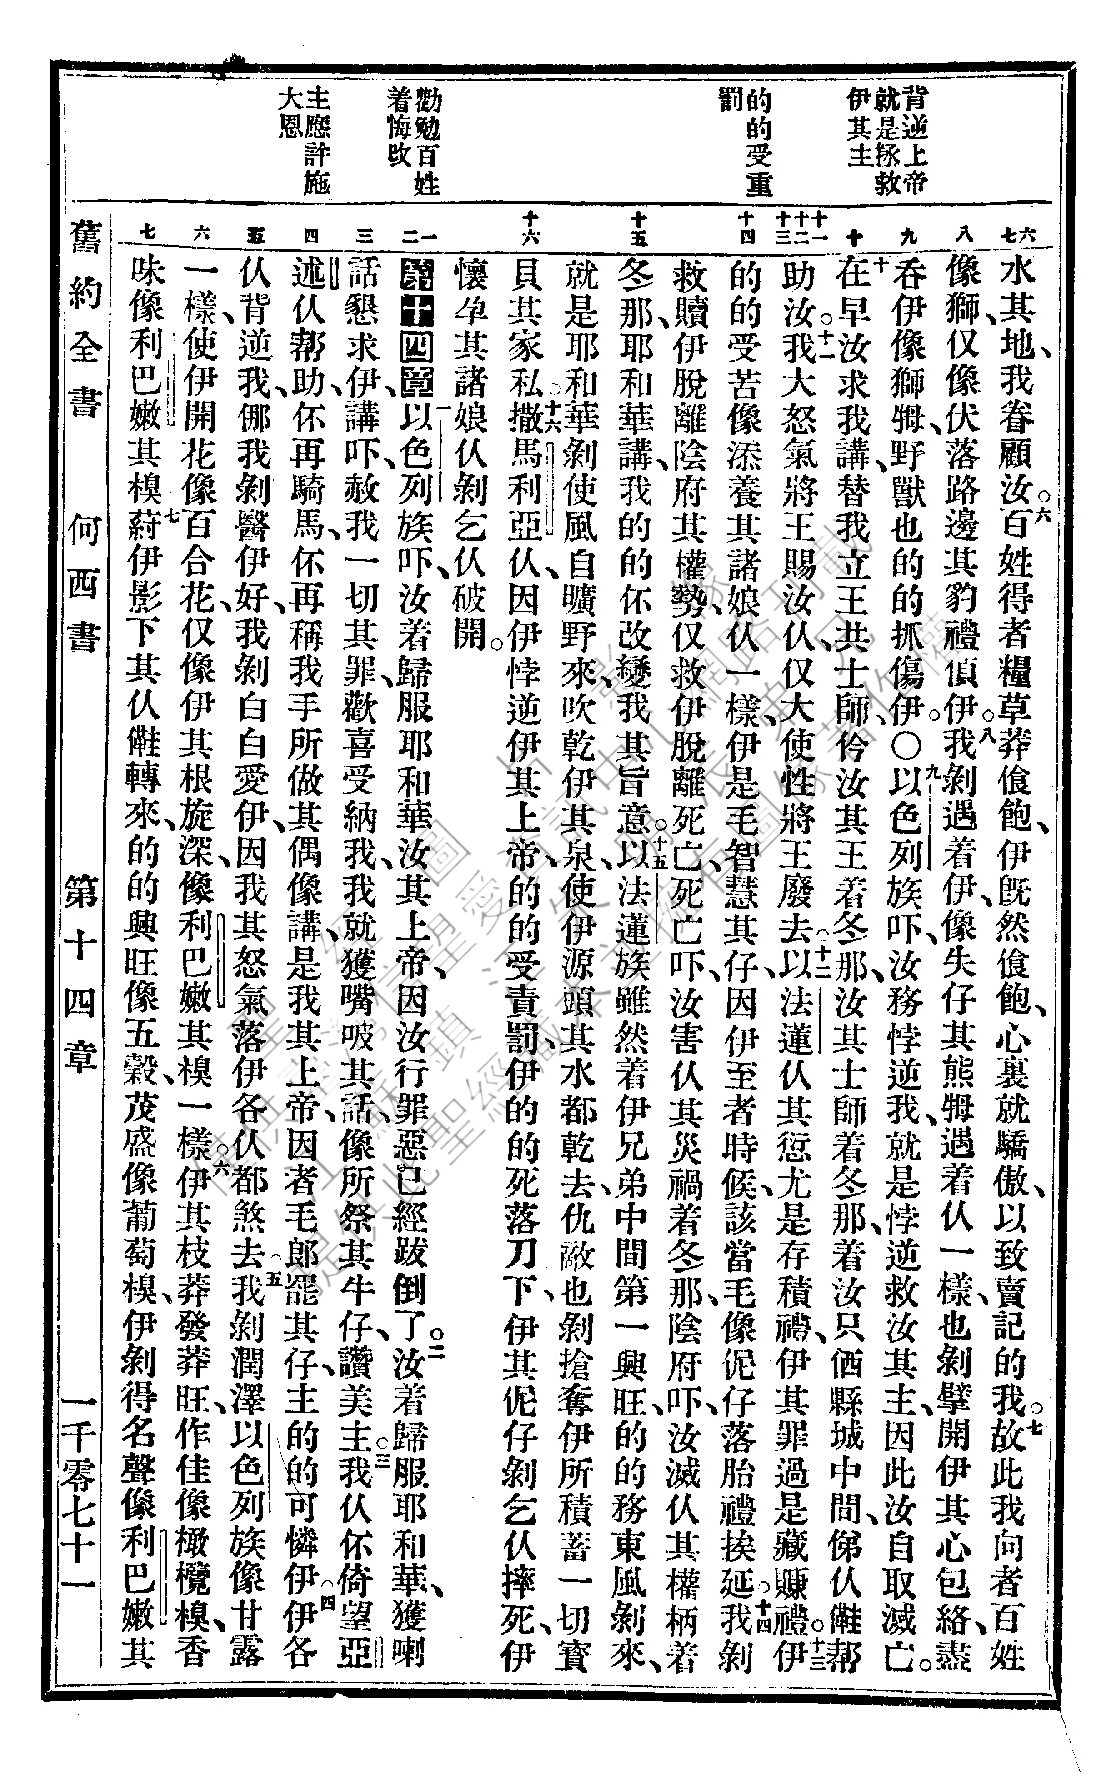 背逆上帝
就是拯救
伊其主
的的受重
罰
勸勉百姓
着悔改
主應許施
大恩
六七
八
九
十
十一十二十三
十四
十五
十六
一二
三
四
五
六
七
水其地、我眷顧汝。六百姓得者糧草莽飽飽、伊旣然飽飽、心裏就驕傲、以致賣記的我。七故此我向者百姓
像獅、仅像伏落路邊其豹禮偵伊。八我剝遇着伊、像失仔其熊𤙩遇着仈一樣、也剝擘開伊其心包絡、盡
吞伊像獅𤙩、野獸也的的抓傷伊。○九以色列族吓、汝務悖逆我、就是悖逆救汝其主、因此汝自取滅亡。
十在早汝求我講、替我立王共士師、伶汝其王着冬那、汝其士師着冬那、着汝只㐰縣城中間、俤仈㑚幫
助汝。十一我大怒氣將王賜汝仈、仅大使性將王廢去。十二以法蓮仈其愆尤是存積禮、伊其罪過是藏賺禮。十三伊
的的受苦像添養其諸娘仈一樣、伊是毛智慧其仔、因伊至者時候、該當毛像伲仔落胎禮挨延。十四我剝
救贖伊脫離陰府其權勢、仅救伊脫離死亡、死亡吓、汝害仈其災禍着冬那、陰府吓、汝滅仈其權柄着
冬那、耶和華講、我的的伓改變我其旨意。十五以法蓮族雖然着伊兄弟中間第一興旺、的的務東風剝來、
就是耶和華剝使風自曠野來、吹乾伊其泉、使伊源頭其水都乾去、仇敵也剝搶奪伊所積蓄一切寶
貝其家私。十六撒馬利亞仈、因伊悖逆伊其上帝、的的受責罰、伊的的死落刀下、伊其伲仔剝乞仈摔死、伊
懷孕其諸娘仈剝乞仈破開。
第十四章一以色列族吓、汝着歸服耶和華汝其上帝、因汝行罪惡已經跋倒了。二汝着歸服耶和華、獲喇
話懇求伊、講吓、赦我一切其罪、歡喜受納我、我就獲嘴㕹其話、像所祭其牛仔、讚美主。三我仈伓倚望亞
述仈幫助、伓再騎馬、伓再稱我手所做其偶像講、是我其上帝、因者毛郎罷其仔、主的的可憐伊。四伊各
仈背逆我、㑚我剝醫伊好、我剝白白愛伊、因我其怒氣落伊各仈都煞去。五我剝潤澤以色列族像甘露
一樣、使伊開花像百合花、仅像伊其根旋深、像利巴嫩其樹一樣。六伊其枝莽發莽旺、作佳像橄欖樹、香
味像利巴嫩其樹。七蔚伊影下其仈㑚轉來、的的興旺像五穀、茂盛像葡萄樹、伊剝得名聲像利巴嫩其
舊約全書
何西書
第十四章
一千零七十一